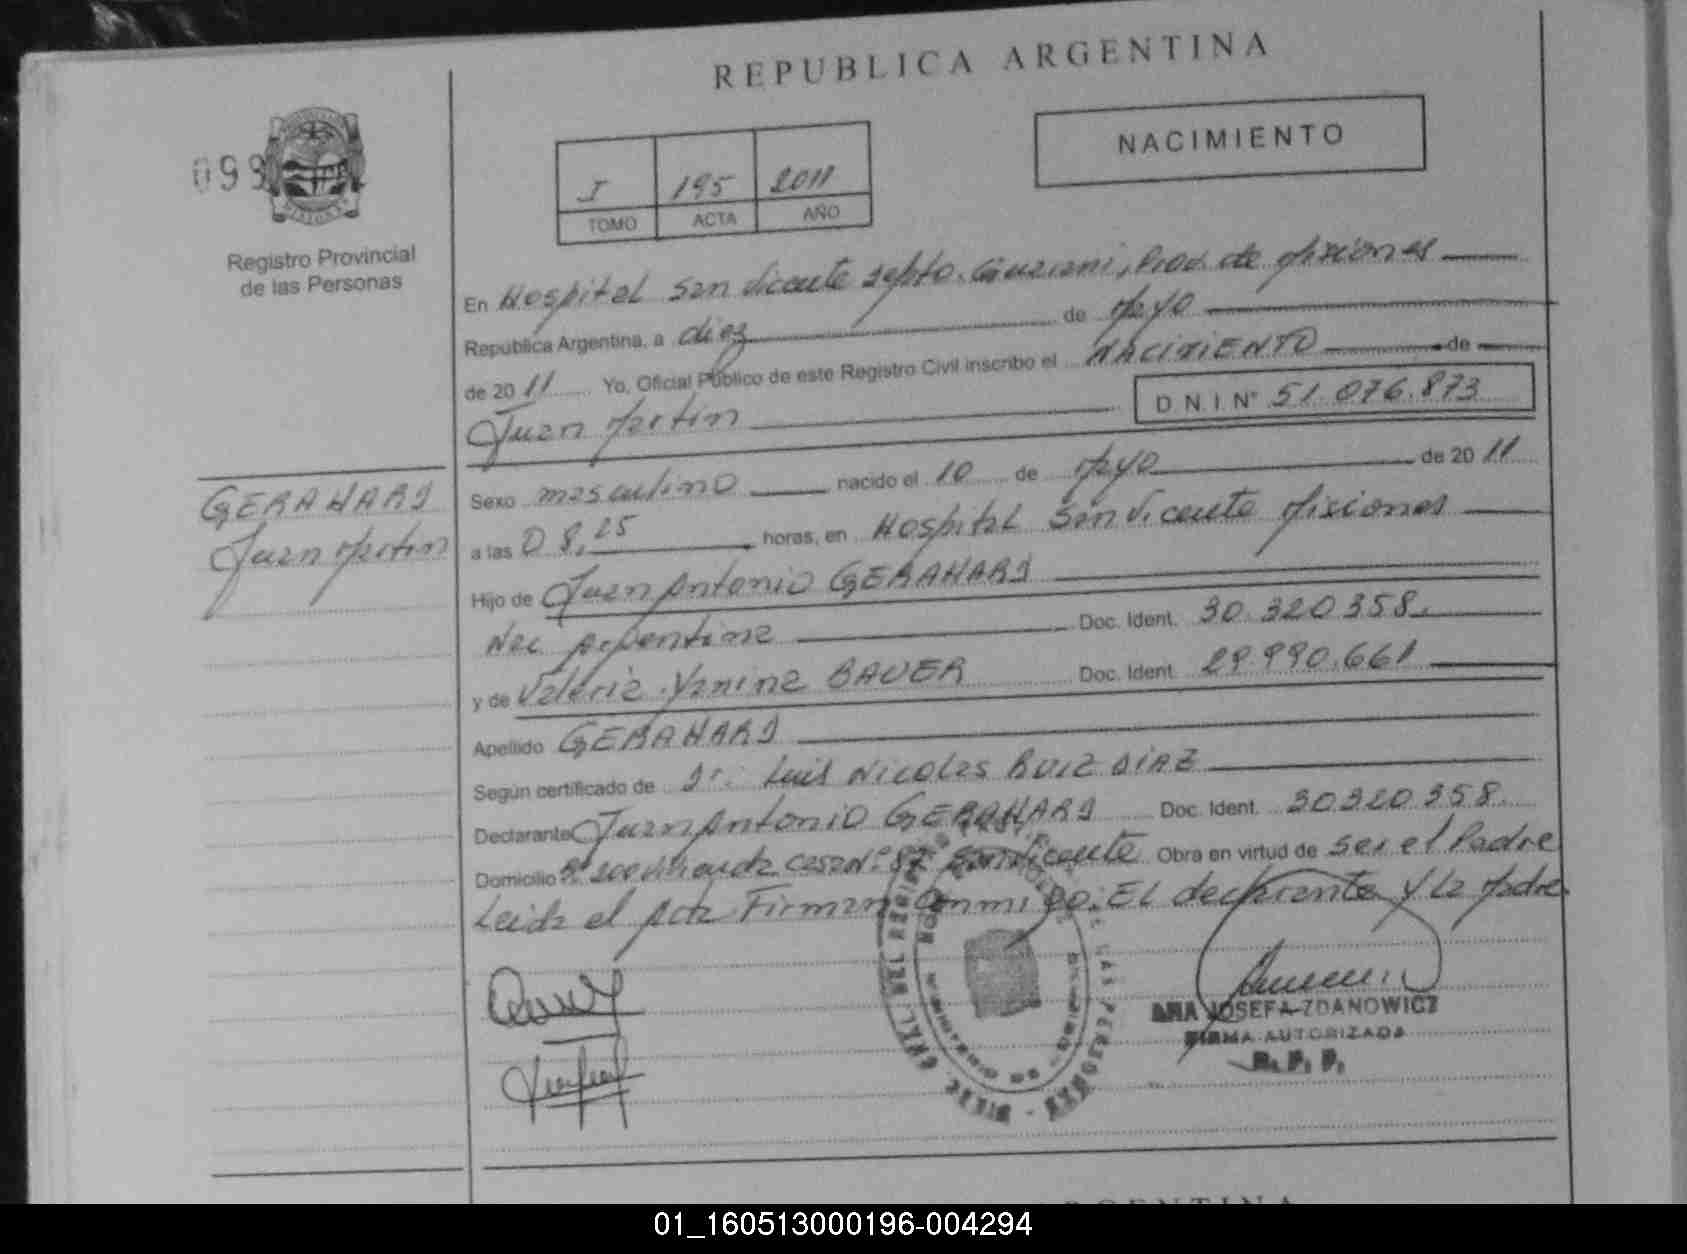 REPUBLICA ARGENTINA
NACIMIENTO
099
I 195 2011
TOMO ACTA AÑO
Registro Provincial
de las Personas
En Hospital San Vicente Depto. Guarani, Prov. de Misiones
República Argentina, a diez de Mayo
de 2011 Yo, Oficial Público de este Registro Civil inscribo el NACIMIENTO de
Juan Martin D.N.I. Nº 51.076.873
GERAHARD
Juan Martin
Sexo masculino nacido el 10 de Mayo de 2011
a las 08,25 horas, en Hospital San Vicente Misiones
Hijo de Juan Antonio GERAHARD
Nac Argentina Doc. Ident. 30.320358.
y de Valeria Yanina BAUER Doc. Ident. 29.990.661
Apellido GERAHARD
Según certificado de Dr. Luis Nicolas RUIZ DIAZ
Declarante Juan Antonio GERAHARD Doc. Ident. 30320358.
Domicilio Bº 200 Vivienda casa Nº 87 San Vicente Obra en virtud de ser el Padre
Leida el Acta Firman Conmigo. El declarante y la Madre
ANA JOSEFA ZDANOWICZ
FIRMA AUTORIZADA
R. P. P.
ARGENTINA
01_160513000196-004294